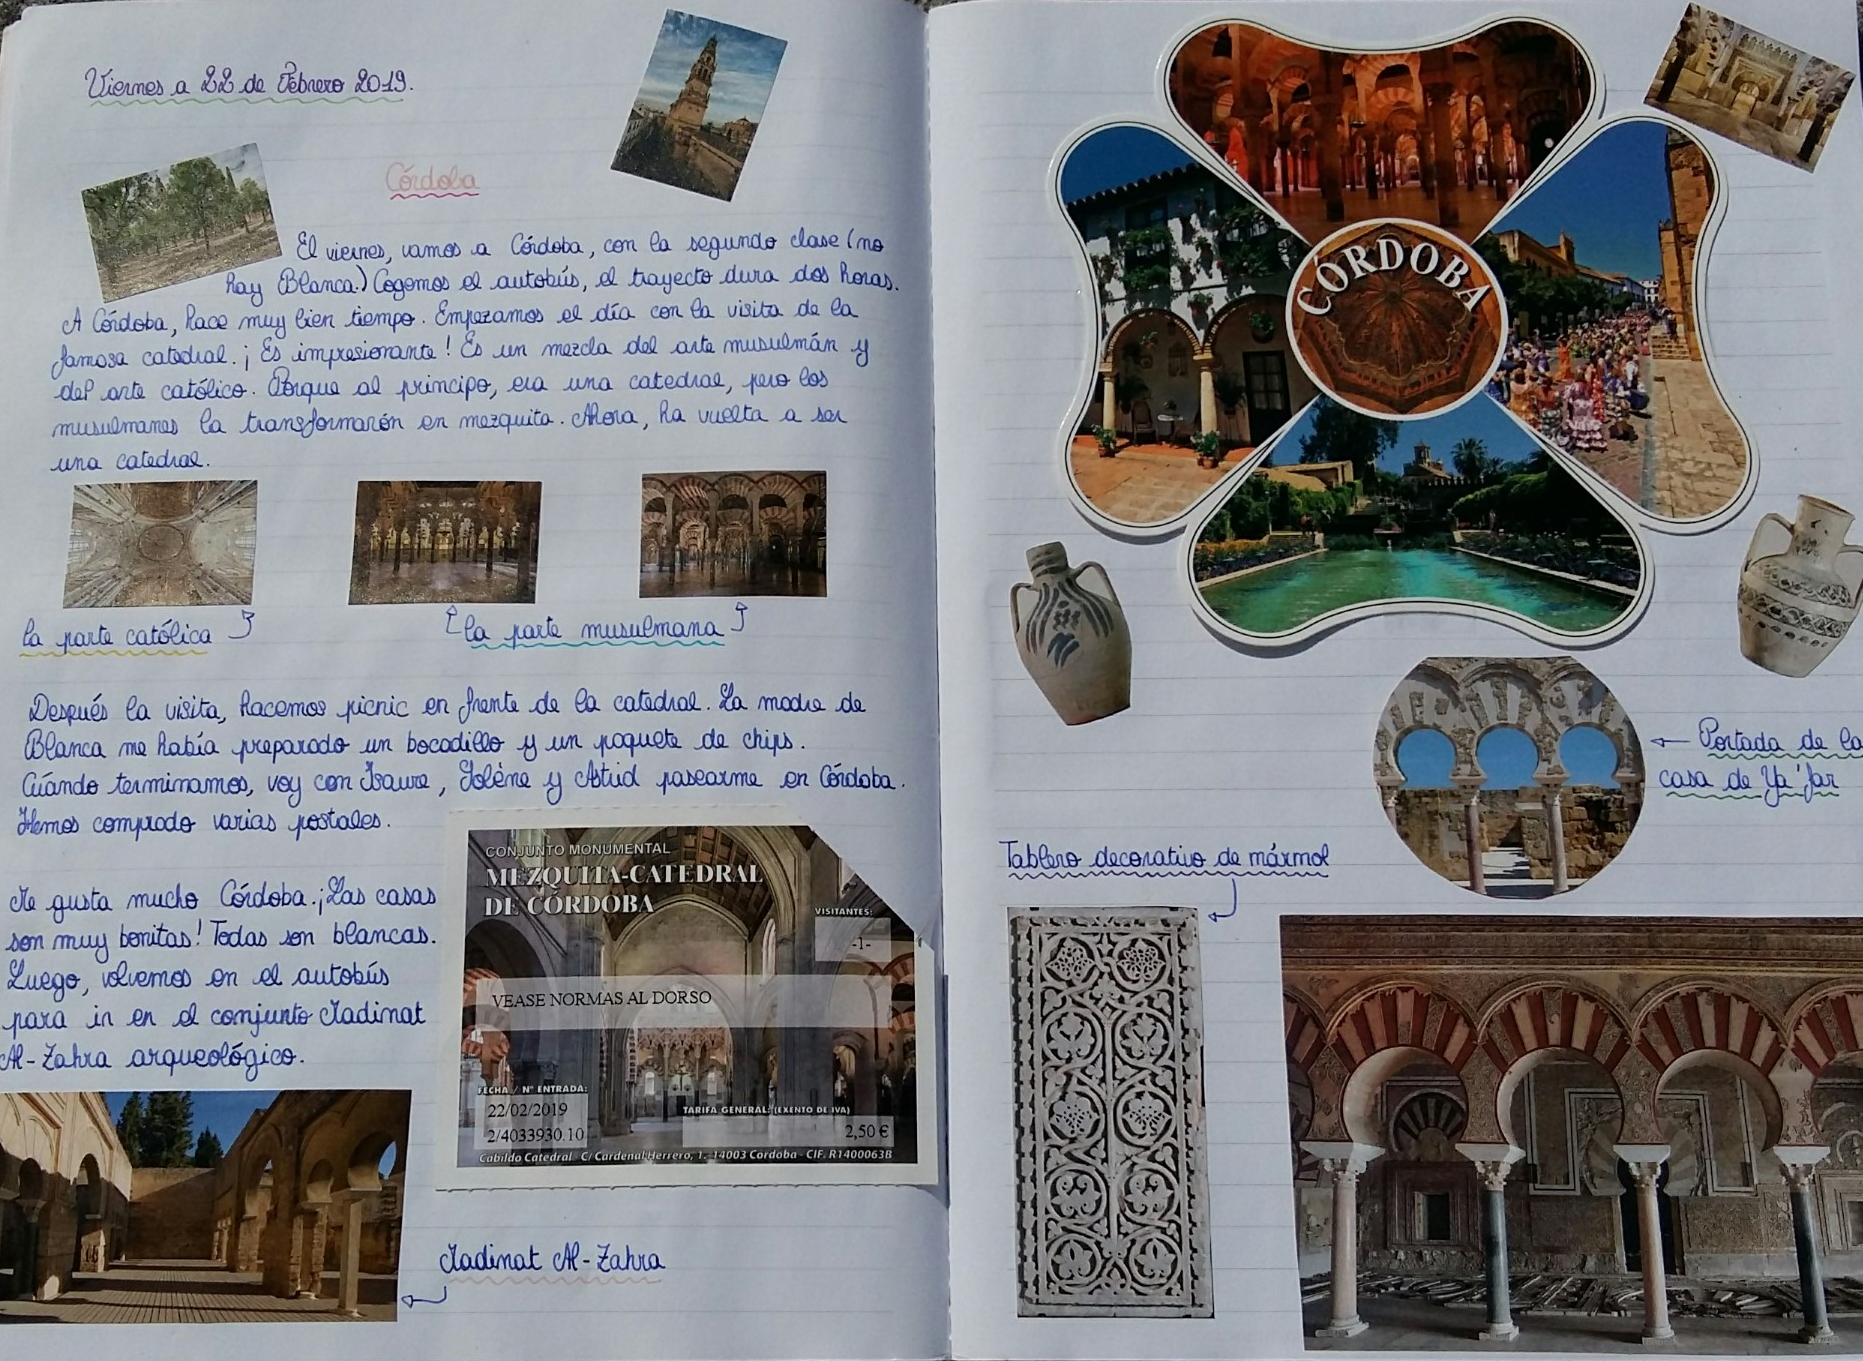 Viernes a 22 de Febrero 2019.
Córdoba
El viernes, vamos a Córdoba, con la segundo clase (no
hay Blanca.) Cogemos el autobús, el trayecto dura dos horas.
A Córdoba, hace muy bien tiempo. Empezamos el día con la visita de la
famosa catedral. ¡Es impresionante! Es un mezcla del arte musulmán y
del arte católico. Porque al principo, era una catedral, pero los
musulmanes la transformarón en mezquita. Ahora, ha vuelta a ser
una catedral.
la parte católica
la parte musulmana
Después la visita, hacemos picnic en frente de la catedral. La madre de
Blanca me había preparado un bocadillo y un paquete de chips.
Cuándo terminamos, voy con Isaure, Solène y Astrid pasearme en Córdoba.
Hemos comprado varias postales.
Me gusta mucho Córdoba. ¡Las casas
son muy bonitas! Todas son blancas.
Luego, volvemos en el autobús
para ir en el conjunto Madinat
Al-Zahra arqueológico.
CONJUNTO MONUMENTAL
MEZQUITA-CATEDRAL
DE CÓRDOBA
VISITANTES:
-1-
VEASE NORMAS AL DORSO
FECHA / Nº ENTRADA:
22/02/2019
2/4033930.10
TARIFA GENERAL: (EXENTO DE IVA)
2,50 €
Cabildo Catedral C/ Cardenal Herrero, 1.- 14003 Cordoba - CIF. R1400063B
Madinat Al-Zahra
CÓRDOBA
Portada de la
casa de Ya'far
Tablero decorativo de mármol